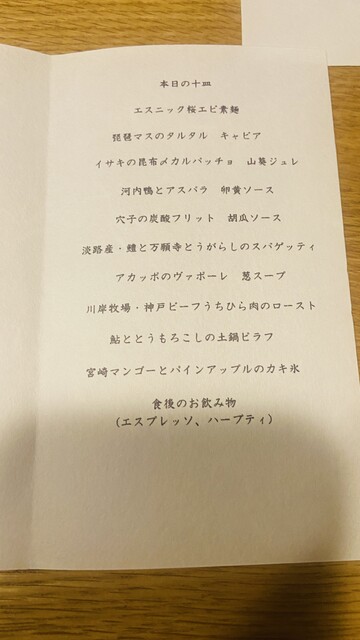 本日の十皿
エスニック桜エビ素麺
琵琶マスのタルタル　キャビア
イサキの昆布〆カルパッチョ　山葵ジュレ
河内鴨とアスパラ　卵黄ソース
穴子の炭酸フリット　胡瓜ソース
淡路産・鱧と万願寺とうがらしのスパゲッティ
アカッポのヴァポーレ　葱スープ
川岸牧場・神戸ビーフうちひら肉のロースト
鮎ととうもろこしの土鍋ピラフ
宮崎マンゴーとパインアップルのカキ氷
食後のお飲み物
(エスプレッソ、ハーブティ)